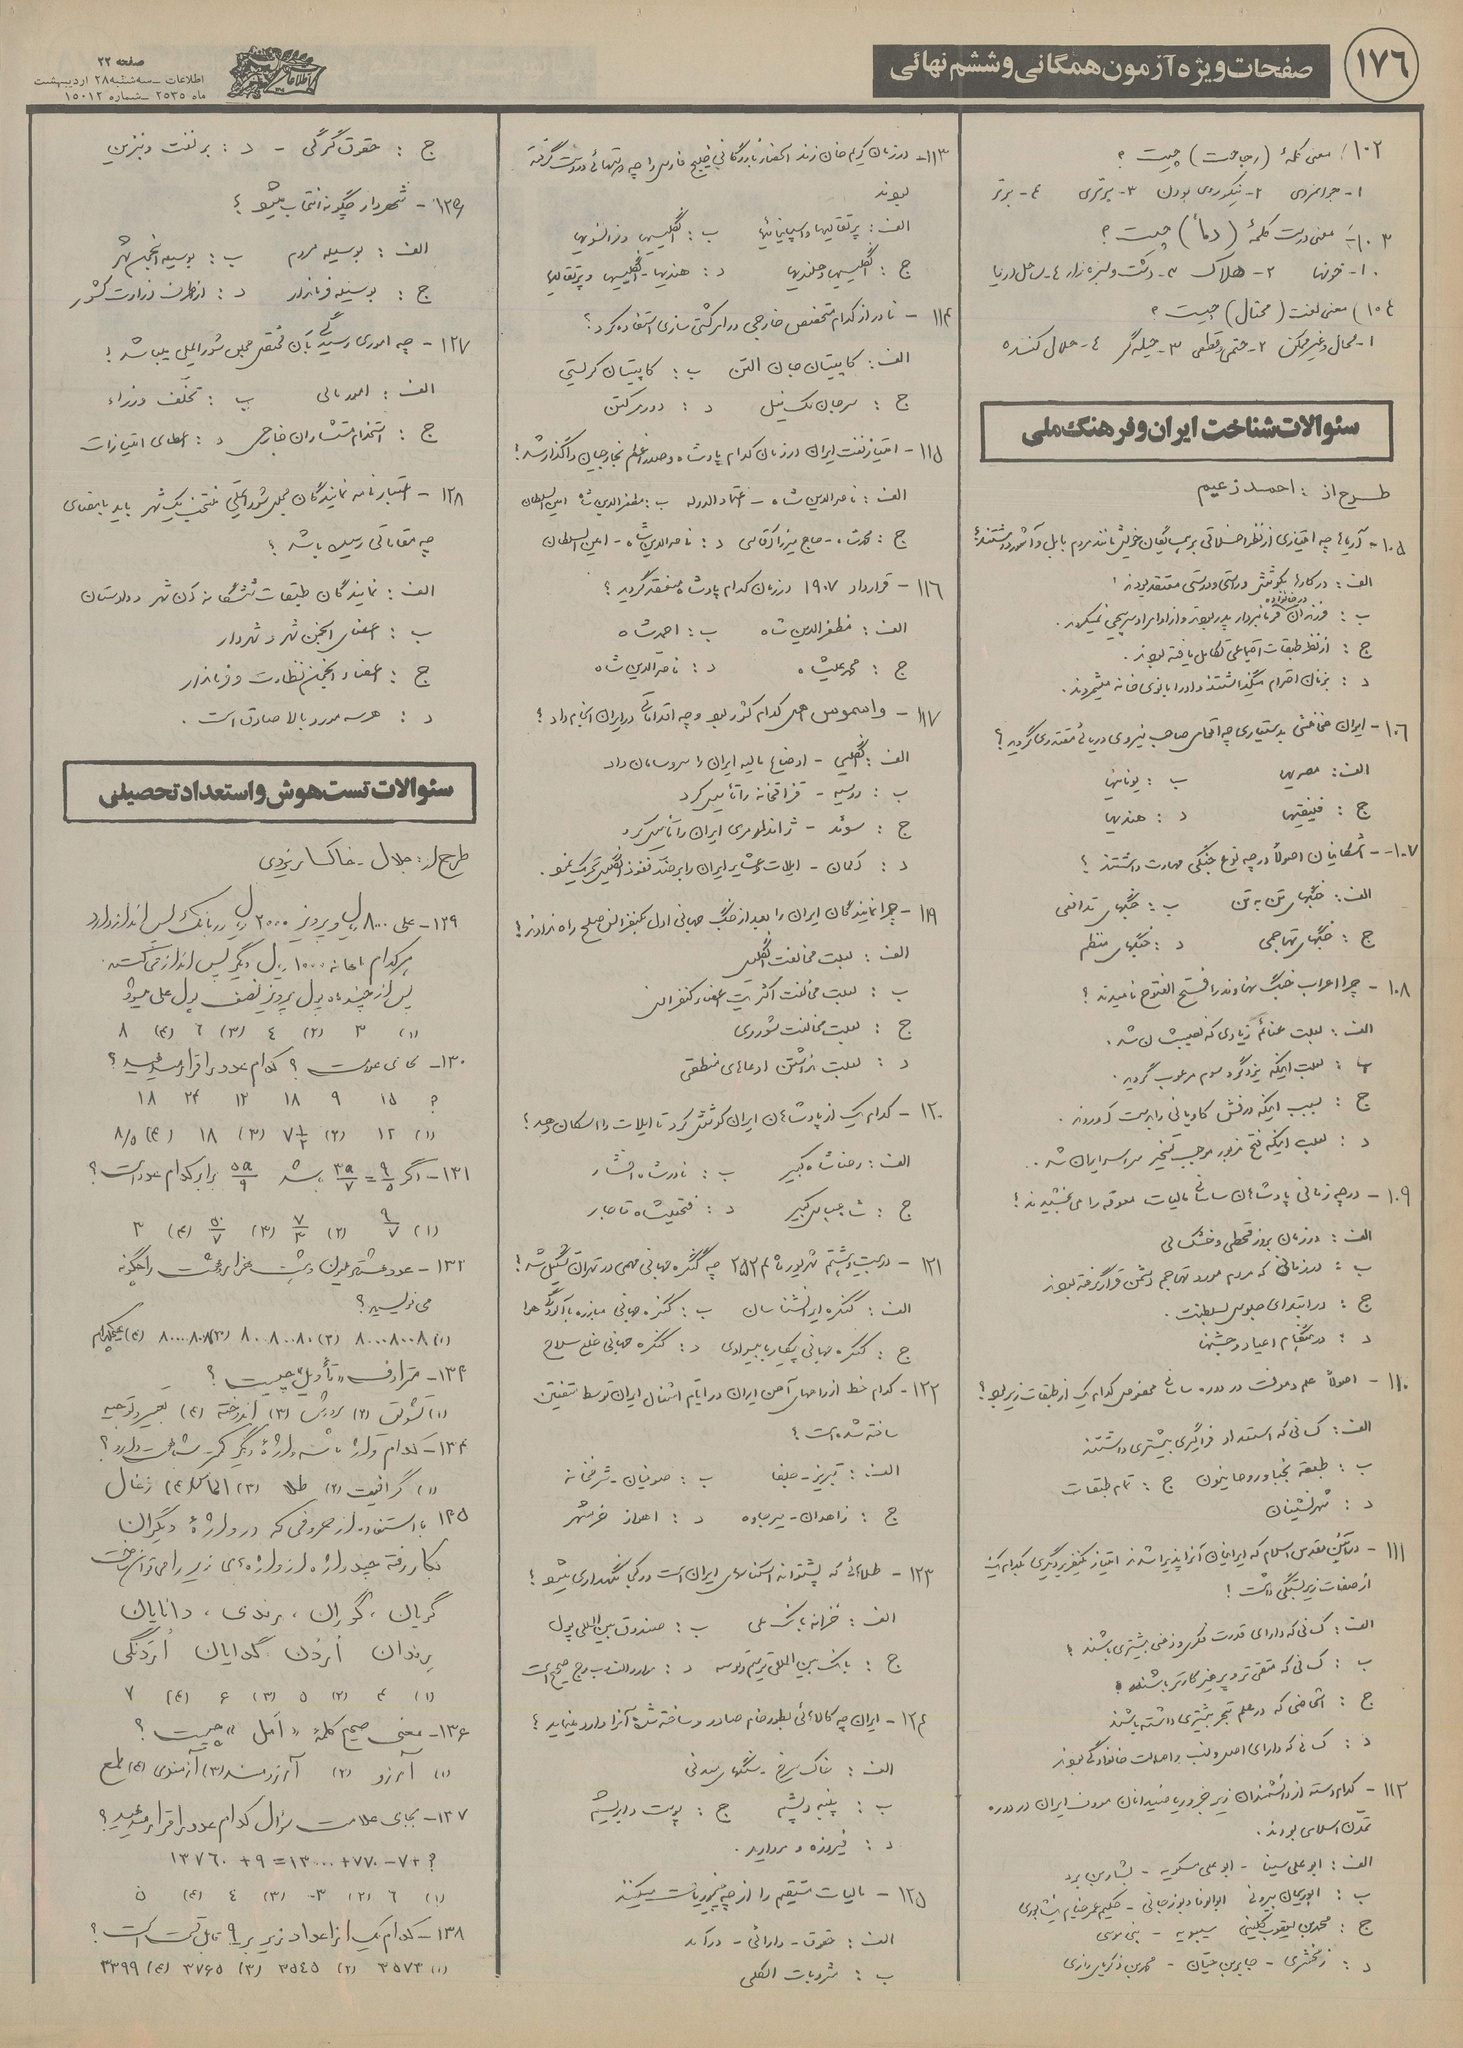 ۱۷۶
صفحات ویژه آزمون همگانی و ششم نهائی
اطلاعات
صفحه ۲۲
اطلاعات ـ سه‌شنبه ۲۸ اردیبهشت
ماه ۲۵۳۵ ـ شماره ۱۵۰۱۲
۱۰۲) معنی کلمهٔ (رجاحت) چیست ؟
۱- جوانمردی ۲- نیکوروی بودن ۳- برتری ۴- برتر
۱۰۳- معنی درست کلمهٔ (دمأ) چیست ؟
۱- خونها ۲- هلاک ۳- دشت و سبزه زار ۴- ساحل دریا
۱۰۴) معنی لغت (محتال) چیست ؟
۱- محال و غیر ممکن ۲- حتمی و قطعی ۳- حیله گر ۴- حلال کننده
سئوالات شناخت ایران و فرهنگ ملی
طرح از : احمد زعیم
۱۰۵- آریاها چه امتیازی از نظر اخلاقی بر همسایگان خویش مانند مردم بابل و آشور داشتند؟
الف : در کارها بکوشش و راستی و درستی معتقد بودند
ب : فرزندان در خانواده فرمانبردار پدر بودند و از اوامر او سرپیچی نمیکردند .
ج : از نظر طبقات اجتماعی تکامل یافته بودند .
د : بزنان احترام میگذاشتند و او را بانوی خانه میشمردند .
۱۰۶- ایران هخامنشی بدستیاری چه اقوامی صاحب نیروی دریائی مقتدری گردید ؟
الف : مصریها ب : یونانیها
ج : فینیقیها د : هندیها
۱۰۷- اشکانیان اصولاً در چه نوع جنگی مهارت داشتند ؟
الف : جنگهای تن به تن ب : جنگهای تدافعی
ج : جنگهای تهاجمی د : جنگهای منظم
۱۰۸- چرا اعراب جنگ نهاوند را فتح الفتوح نامیدند ؟
الف : بعلت غنائم زیادی که نصیبشان شد .
ب : بعلت اینکه یزدگرد سوم مرعوب گردید .
ج : بسبب اینکه درفش کاویانی را بدست آوردند .
د : بعلت اینکه فتح مزبور موجب تسخیر سراسر ایران شد .
۱۰۹- در چه زمانی پادشاهان ساسانی مالیات معوقه را می بخشیدند ؟
الف : در زمان بروز قحطی و خشکسالی
ب : در زمانی که مردم مورد تهاجم دشمن قرار گرفته بودند
ج : در ابتدای جلوس بسلطنت .
د : در هنگام اعیاد و جشنها
۱۱۰- اصولاً علم و معرفت در دوره ساسانی مخصوص کدام یک از طبقات زیر بود ؟
الف : کسانی که استعداد فراگیری بیشتری داشتند
ب : طبقه نجبا و روحانیون ج : تمام طبقات
د : شهرنشینان
۱۱۱- در آئین مقدس اسلام که ایرانیان آنرا پذیرا شدند امتیاز یکنفر بر دیگری بکدام یک
از صفات زیر بستگی داشت ؟
الف : کسانی که دارای قدرت فکری و ذهنی بیشتری باشند ؟
ب : کسانی که متقی تر و پرهیزکارتر باشند .
ج : اشخاصی که در علم تبحر بیشتری داشته باشند
د : کسانی که دارای اصل و نسب و اصالت خانوادگی بودند
۱۱۲- کدام دسته از دانشمندان زیر جزو ریاضیدانان معروف ایران در دوره
تمدن اسلامی بودند .
الف : ابو علی سینا - ابو علی مسکویه - بشار بن برد
ب : ابوریحان بیرونی ابوالوفا بوزجانی - حکیم عمر خیام نیشابوری
ج : محمد بن یعقوب کلینی سیبویه - بنی موسی
د : زمخشری - جابر بن حیان - محمد بن زکریای رازی
۱۱۳- در زمان کریم خان زند انحصار بازرگانی خلیج فارس را چه دولتهائی در دست گرفته
بودند
الف : پرتقالیها و اسپانیائیها ب : انگلیسیها و فرانسویها
ج : انگلیسیها و هلندیها د : هندیها - انگلیسیها و پرتقالیها
۱۱۴- نادر از کدام متخصص خارجی در امر کشتی سازی استفاده کرد ؟
الف : کاپیتان جان التن ب : کاپیتان کریستی
ج : سر جان مک نیل د : دورسکتن
۱۱۵- امتیاز نفت ایران در زمان کدام پادشاه و صدراعظم بخارجیان واگذار شد ؟
الف : ناصرالدین شاه - اعتمادالدوله ب : مظفرالدین شاه امین السلطان
ج : محمد شاه - حاج میرزا آقاسی د : ناصرالدین شاه - امین السلطان
۱۱۶- قرارداد ۱۹۰۷ در زمان کدام پادشاه منعقد گردید ؟
الف : مظفرالدین شاه ب : احمد شاه
ج : محمد علیشاه د : ناصرالدین شاه
۱۱۷- واسموس اهل کدام کشور بود و چه اقداماتی در ایران انجام داد ؟
الف : انگلیس - اوضاع مالیه ایران را سر و سامان داد
ب : روسیه - قزاقخانه را تأسیس کرد
ج : سوئد - ژاندارمری ایران را تأسیس کرد
د : آلمان - ایلات و عشایر ایران را بر ضد نفوذ انگلیس تحریک نمود .
۱۱۹- چرا نمایندگان ایران را بعد از جنگ جهانی اول بکنفرانس صلح راه ندادند ؟
الف : بعلت مخالفت انگلیس
ب : بعلت مخالفت اکثریت اعضاء کنفرانس
ج : بعلت مخالفت شوروی
د : بعلت نداشتن ادعاهای منطقی
۱۲۰- کدام یک از پادشاهان ایران کوشش کرد تا ایلات را اسکان دهد ؟
الف : رضا شاه کبیر ب : نادر شاه افشار
ج : شاه عباس کبیر د : فتحعلیشاه قاجار
۱۲۱- در بیست و هشتم شهریور ماه ۲۵۳۴ چه کنگره جهانی مهمی در تهران تشکیل شد ؟
الف : کنگره ایرانشناسان ب : کنگره جهانی مبارزه با آلودگی هوا
ج : کنگره جهانی پیکار با بیسوادی د : کنگره جهانی خلع سلاح
۱۲۲- کدام خط از راههای آهن ایران در ایام اشغال ایران توسط متفقین
ساخته شده است ؟
الف : تبریز - جلفا ب : صوفیان - شرفخانه
ج : زاهدان - میرجاوه د : اهواز خرمشهر
۱۲۳- طلائی که پشتوانه اسکناسهای ایران است در کجا نگهداری میشود ؟
الف : خزانه بانک ملی ب : صندوق بین المللی پول
ج : بانک بین المللی ترمیم و توسعه د : موارد الف ب و ج صحیح است
۱۲۴- ایران چه کالائی بطور خام صادر و ساخته شدهٔ آنرا وارد مینماید ؟
الف : خاک سرخ - سنگهای معدنی
ب : پنبه و پشم ج : پوست و ابریشم
د : فیروزه و مروارید .
۱۲۵- مالیات مستقیم را از چه چیز دریافت میکنند
الف : حقوق - دارائی - درآمد
ب : مشروبات الکلی
ج : حقوق گمرگی - د : بر نفت و بنزین
۱۲۶- شهردار چگونه انتخاب میشود ؟
الف : بوسیله مردم ب : بوسیله انجمن شهر
ج : بوسیله فرماندار د : از طرف وزارت کشور
۱۲۷- چه اموری رسیدگی بآن مختص مجلس شورایملی میباشد ؟
الف : امور مالی ب : تخلف وزراء
ج : استخدام مستشاران خارجی د : اعطای امتیازات
۱۲۸- اعتبارنامه نمایندگان مجلس شورایملی منتخب یک شهر باید با امضای
چه مقاماتی رسیده باشد ؟
الف : نمایندگان طبقات ششگانه آن شهر و دادستان
ب : اعضای انجمن شهر و شهردار
ج : اعضاء انجمن نظارت و فرماندار
د : هر سه مورد بالا صادق است .
سئوالات تست هوش و استعداد تحصیلی
طرح از : جلال - خاکسار یزدی
۱۲۹- علی ۸۰۰۰ ریال و پرویز ۲۰۰۰ ریال در بانک پس انداز دارد
هر کدام ماهانه ۱۰۰۰ ریال دیگر پس انداز می کنند .
پس از چند ماه پول پرویز نصف پول علی میشود
(۱) ۳ (۲) ۴ (۳) ۶ (۴) ۸
۱۳۰- بجای علامت ؟ کدام عدد را قرار میدهید ؟
؟ ۱۵ ۹ ۱۸ ۱۲ ۲۴ ۱۸
(۱) ۱۲ (۲) ۷ ۱/۲ (۳) ۱۸ (۴) ۸/۵
۱۳۱- اگر ۹/۵ = ۳a/۷ باشد ۵a/۹ برابر کدام عدد است ؟
(۱) ۹/۷ (۲) ۷/۳ (۳) ۵۰/۷ (۴) ۳
۱۳۲- عدد هشتاد میلیون و هشت هزار و هشت را چگونه
می نویسید ؟
(۱) ۸۰۰۰۸۰۰۸ (۲) ۸۰۰۸۰۰۸۰ (۳) ۸۰۰۰۸۰۸ (۴) هیچکدام
۱۳۴- مترادف «تأویل» چیست ؟
(۱) تشوق (۲) پرورش (۳) اندوخته (۴) تعبیر و توجیه
۱۳۴- کدام واژه با سه واژهٔ دیگر کمتر شباهت دارد ؟
(۱) گرافیت (۲) طلا (۳) الماس (۴) زغال
۱۳۵ با استفاده از حروفی که در واژهٔ دیگران
بکار رفته چند واژه از واژه های زیر را می توان ساخت
گریان ، گوران ، برندی ، دانایان
برندان اُردُن گدایان اُردَنگی
(۱) ۴ (۲) ۵ (۳) ۶ (۴) ۷
۱۳۶- معنی صحیح کلمهٔ «اَمل» چیست ؟
(۱) آرزو (۲) آرزومند (۳) آزمندی (۴) طمع
۱۳۷- بجای علامت سؤال کدام عدد را قرار میدهید ؟
۱۳۷۶۰ +۹ =۱۳۰۰۰ +۷۷۰ -۷+ ؟
(۱) ۶ (۲) ۳- (۳) ۴ (۴) ۵
۱۳۸- کدام یک از اعداد زیر بر ۹ قابل قسمت است ؟
(۱) ۳۵۷۳ (۲) ۳۵۴۵ (۳) ۳۷۶۵ (۴) ۳۳۹۹